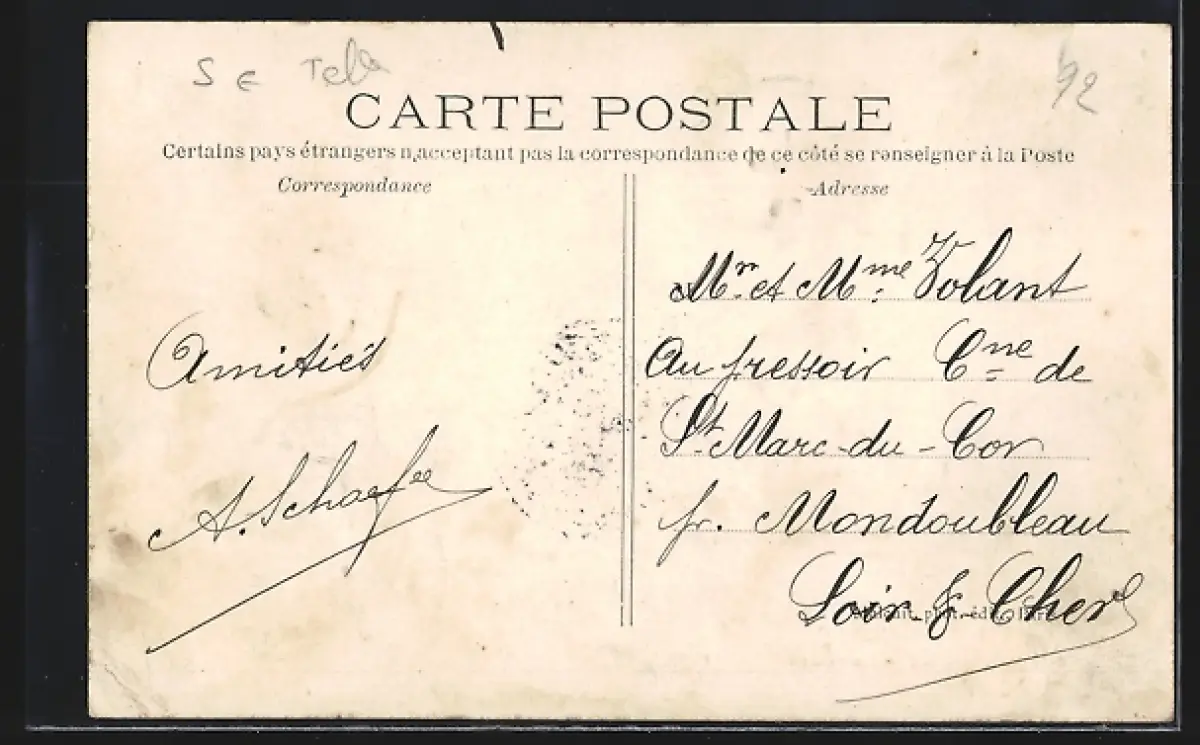 92
CARTE POSTALE
Certains pays étrangers n'acceptant pas la correspondance de ce côté se renseigner à la Poste
Correspondance
Adresse
Amitiés
A. Schaefer
Mr. et Mme. Volant
Au pressoir Cne de
St Marc-du-Cor
pr. Mondoubleau
Loir & Cher